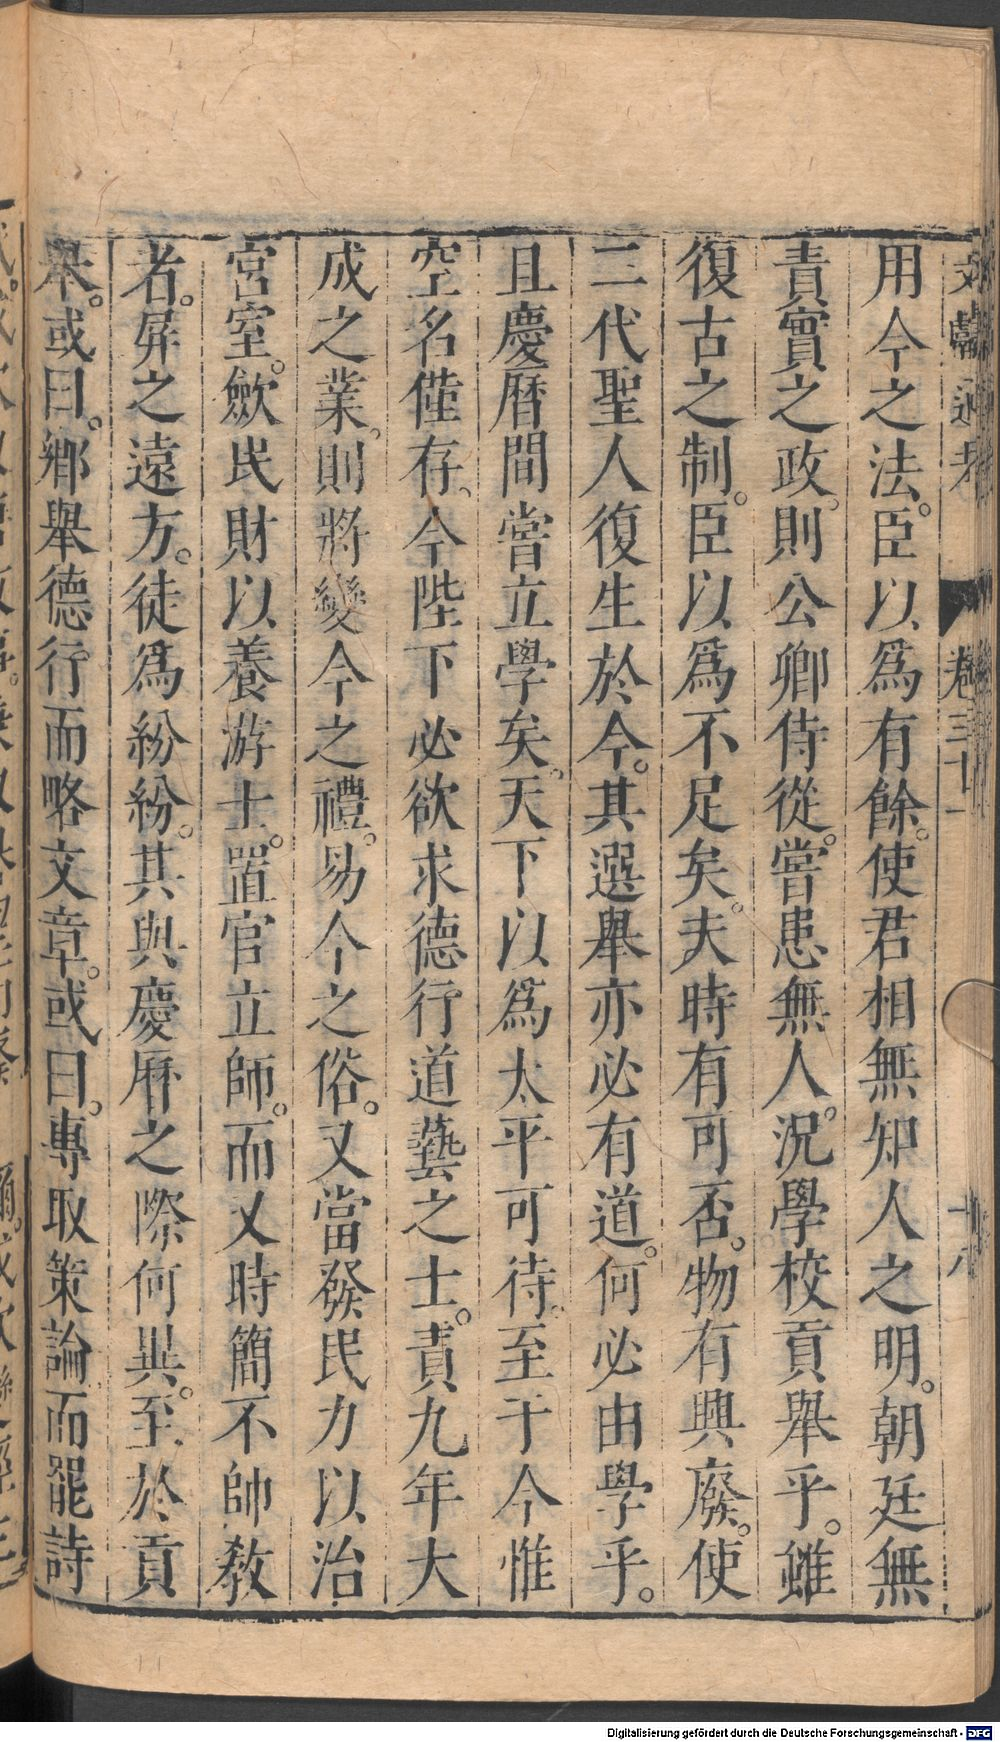 用今之法。臣以爲有餘。使君相無知人之明。朝廷無
責實之政。則公卿侍從。嘗患無人。況學校貢舉乎。雖
復古之制。臣以爲不足矣。夫時有可否。物有興廢。使
三代聖人復生於今。其選舉亦必有道。何必由學乎。
且慶曆間嘗立學矣。天下以爲太平可待。至于今惟
空名僅存。今陛下必欲求德行道藝之士。責九年大
成之業。則將變今之禮。易今之俗。又當發民力以治
宮室。斂民財以養游士。置官立師。而又時簡不帥教
者。屏之遠方。徒爲紛紛。其與慶曆之際何異。至於貢
舉。或曰。鄉舉德行而略文章。或曰。專取策論而罷詩
文獻通考 卷三十一 十八
Digitalisierung gefördert durch die Deutsche Forschungsgemeinschaft - DFG